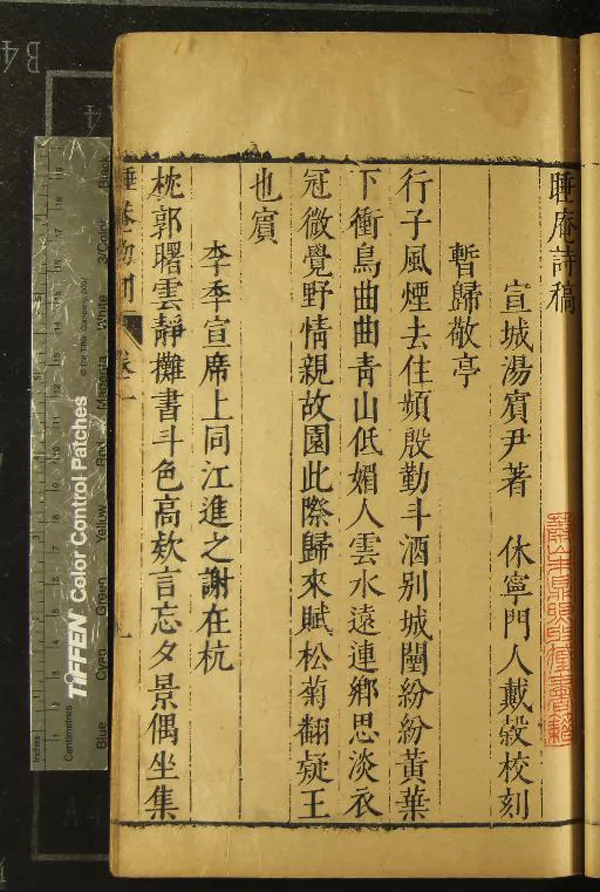 睡庵詩稿
宣城湯賓尹著 休寧門人戴㲄校刻
暫歸敬亭
行子風煙去住頻殷勤斗酒別城闉紛紛黃葉
下衝鳥曲曲青山低媚人雲水遠連鄉思淡衣
冠微覺野情親故園此際歸來賦松菊翻疑王
也賓
李季宣席上同江進之謝在杭
枕郭曙雲靜攤書斗色高欬言忘夕景偶坐集
卷一
TIFFEN Color Control Patches
© The Tiffen Company
Inches
Centimetres
Blue
Cyan
Green
Yellow
Red
Magenta
White
3/Color
Black
B4
A4